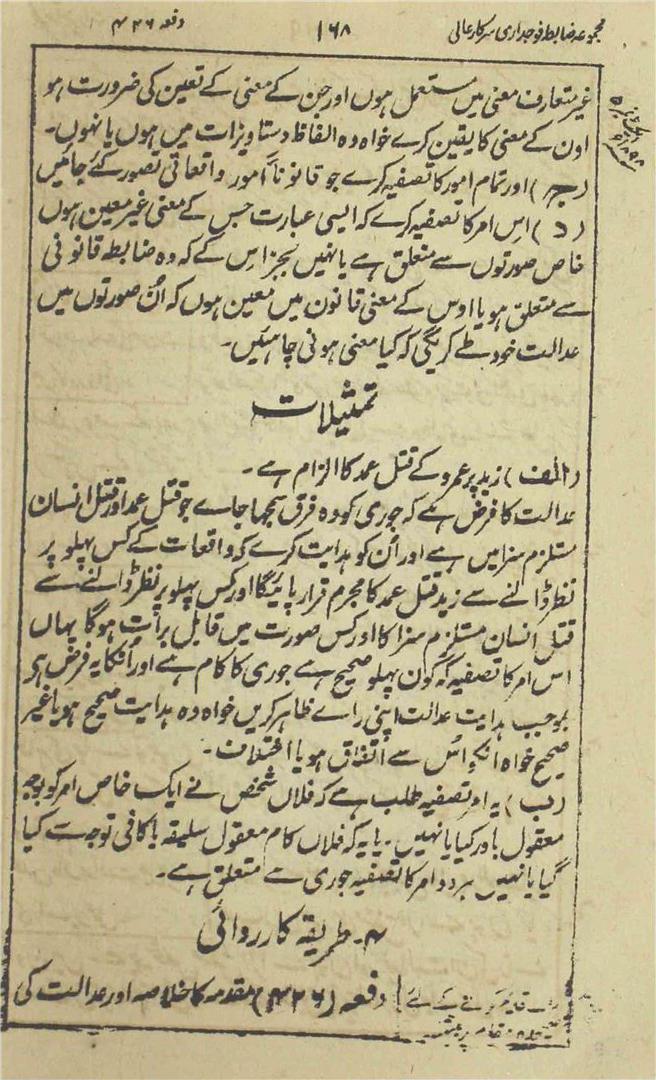 مجموعہ ضابطہ فوجداری سرکار عالی
۱۶۸
دفعہ ۴۲۶
غیر متعارف معنی میں مستعمل ہوں اور جن کے معنی کے تعین کی ضرورت ہو
اون کے معنی کا یقین کرے خواہ وہ الفاظ دستاویزات میں ہوں یا نہوں۔
(جـ) اور تمام امور کا تصفیہ کرے جو قانوناً امور واقعاتی تصور کئے جائیں
(د) اس امر کا تصفیہ کرے کہ ایسی عبارت جس کے معنی غیر معین ہوں
خاص صورتوں سے متعلق ہے یا نہیں بجز اس کے کہ وہ ضابطہ قانونی
سے متعلق ہو یا اوس کے معنی قانون میں معین ہوں کہ اُن صورتوں میں
عدالت خود طے کریگی کہ کیا معنی ہونی چاہئیں۔
تمثیلات
(الف) زید پر عمرو کے قتل عمد کا الزام ہے۔
عدالت کا فرض ہے کہ جوری کو وہ فرق سمجھا جاے جو قتل عمد اور قتل انسان
مستلزم سزا میں ہے اور اُن کو ہدایت کرے کہ واقعات کے کس پہلو پر
نظر ڈالنے سے زید قتل عمد کا مجرم قرار پائیگا اور کس پہلو پر نظر ڈالنے سے
قتل انسان مستلزم سزا کا اور کس صورت میں قابل برأت ہوگا یہاں
اس امر کا تصفیہ کہ کون پہلو صحیح ہے جوری کا کام ہے اور اُنکا یہ فرض ہی
بموجب ہدایت عدالت اپنی راے ظاہر کریں خواہ وہ ہدایت صحیح ہو یا غیر
صحیح خواہ انکو اُس سے اتفاق ہو یا اختلاف۔
(ب) یہ امر تصفیہ طلب ہے کہ فلاں شخص نے ایک خاص امر کو بوجہ
معقول باور کیا یا نہیں۔ یا یہ کہ فلاں کام معقول سلیقہ یا کافی توجہ سے کیا
گیا یا نہیں ہر دو امر کا تصفیہ جوری سے متعلق ہے۔
۴۔ طریقہ کارروائی
دفعہ (۴۲۶) مقدمہ کا خلاصہ اور عدالت کی